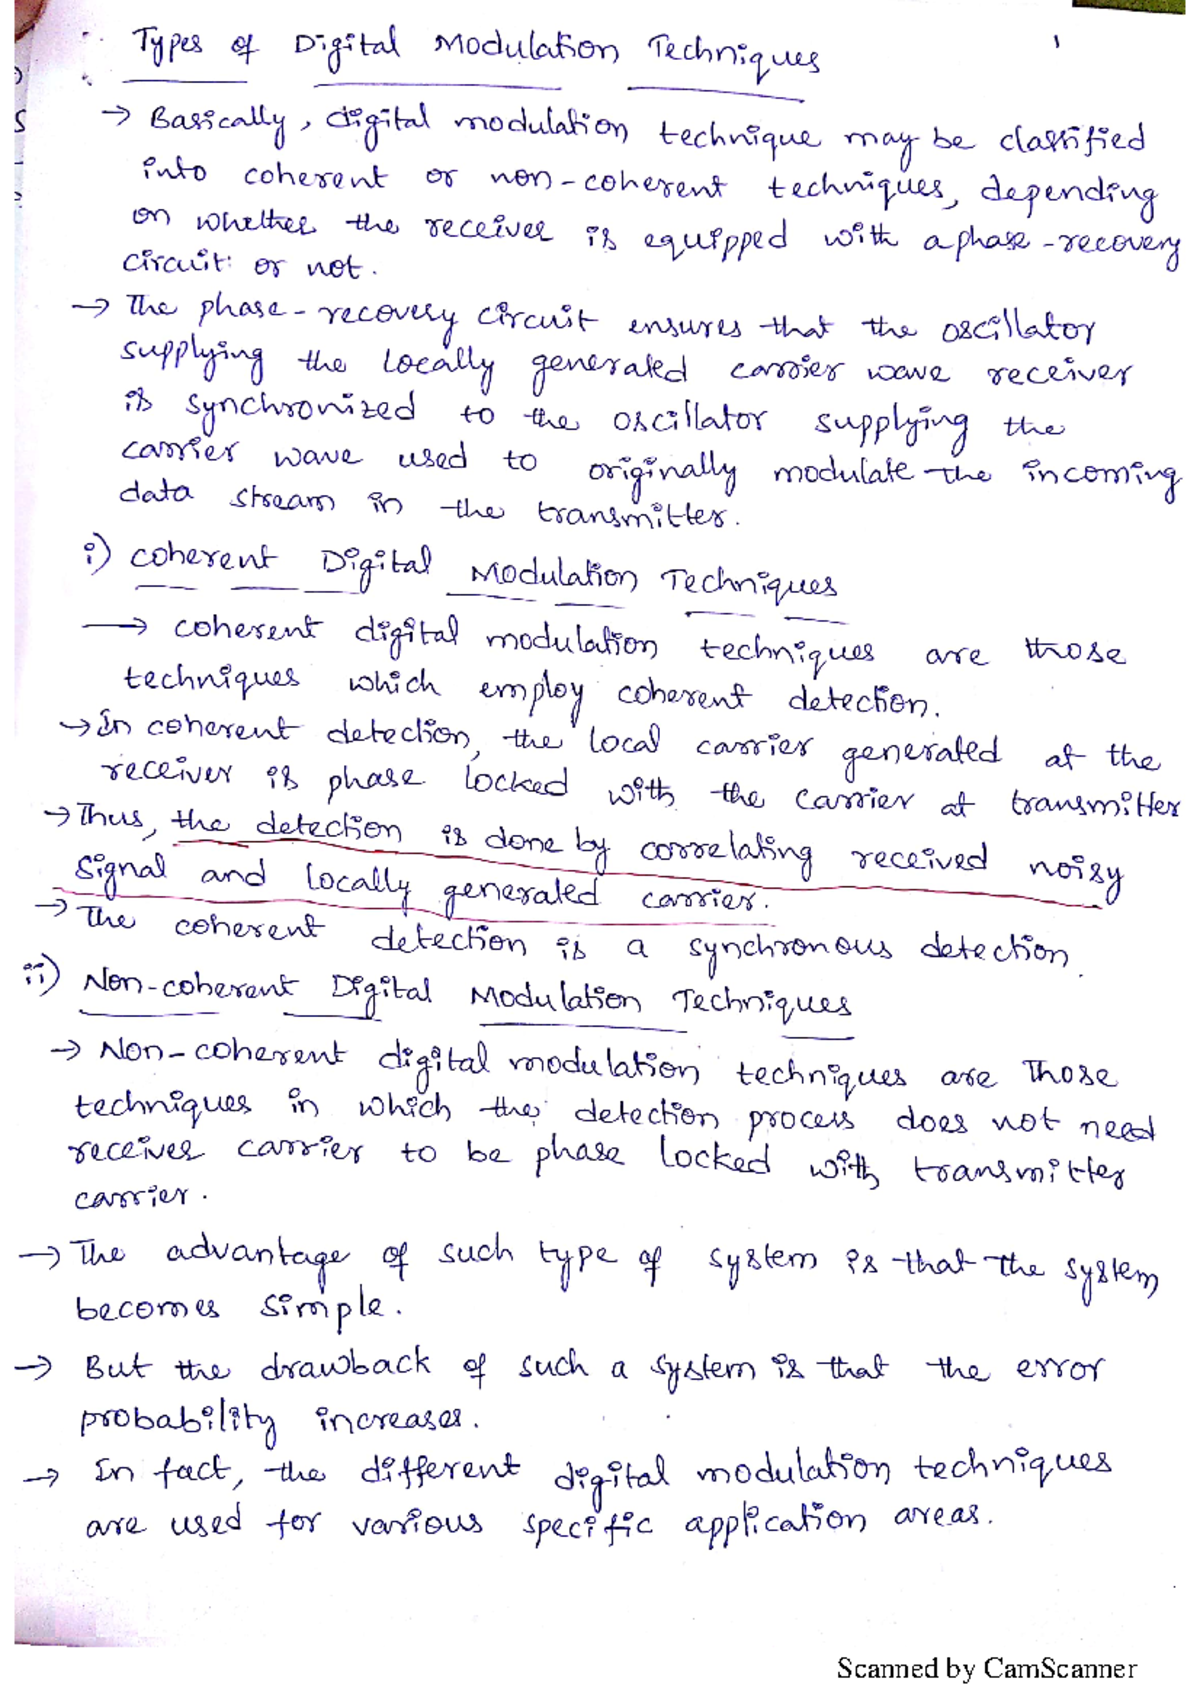 Types of Digital Modulation Techniques
1
→ Basically, digital modulation technique may be classified
into coherent or non-coherent techniques, depending
on whether the receiver is equipped with a phase-recovery
circuit or not.
→ The phase-recovery circuit ensures that the oscillator
supplying the locally generated carrier wave receiver
is synchronized to the oscillator supplying the
carrier wave used to originally modulate the incoming
data stream in the transmitter.
i) coherent Digital Modulation Techniques
→ coherent digital modulation techniques are those
techniques which employ coherent detection.
→ In coherent detection, the local carrier generated at the
receiver is phase locked with the carrier at transmitter
→ Thus, the detection is done by correlating received noisy
signal and locally generated carrier.
→ The coherent detection is a synchronous detection.
ii) Non-coherent Digital Modulation Techniques
→ Non-coherent digital modulation techniques are Those
techniques in which the detection process does not need
receiver carrier to be phase locked with transmitter
carrier.
→ The advantage of such type of system is that the system
becomes simple.
→ But the drawback of such a system is that the error
probability increases.
→ In fact, the different digital modulation techniques
are used for various specific application areas.
Scanned by CamScanner